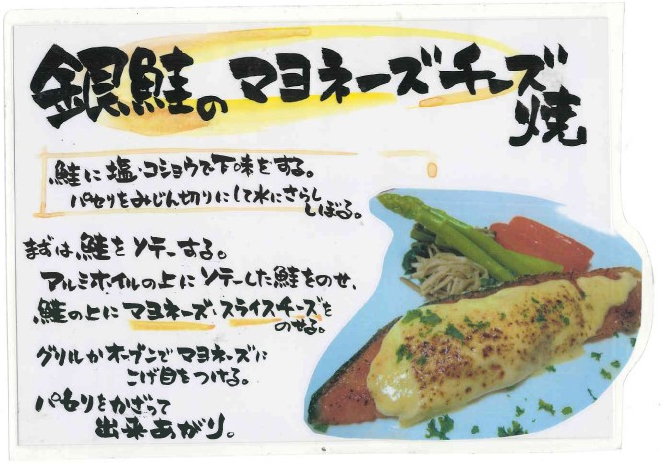 銀鮭のマヨネーズチーズ
焼
鮭に塩・コショウで下味をする。
パセリをみじん切りにして水にさらし
しぼる。
まずは、鮭をソテーする。
アルミホイルの上にソテーした鮭をのせ、
鮭の上にマヨネーズ、スライスチーズを
のせる。
グリルかオーブンでマヨネーズに
こげ目をつける。
パセリをかざって
出来あがり。